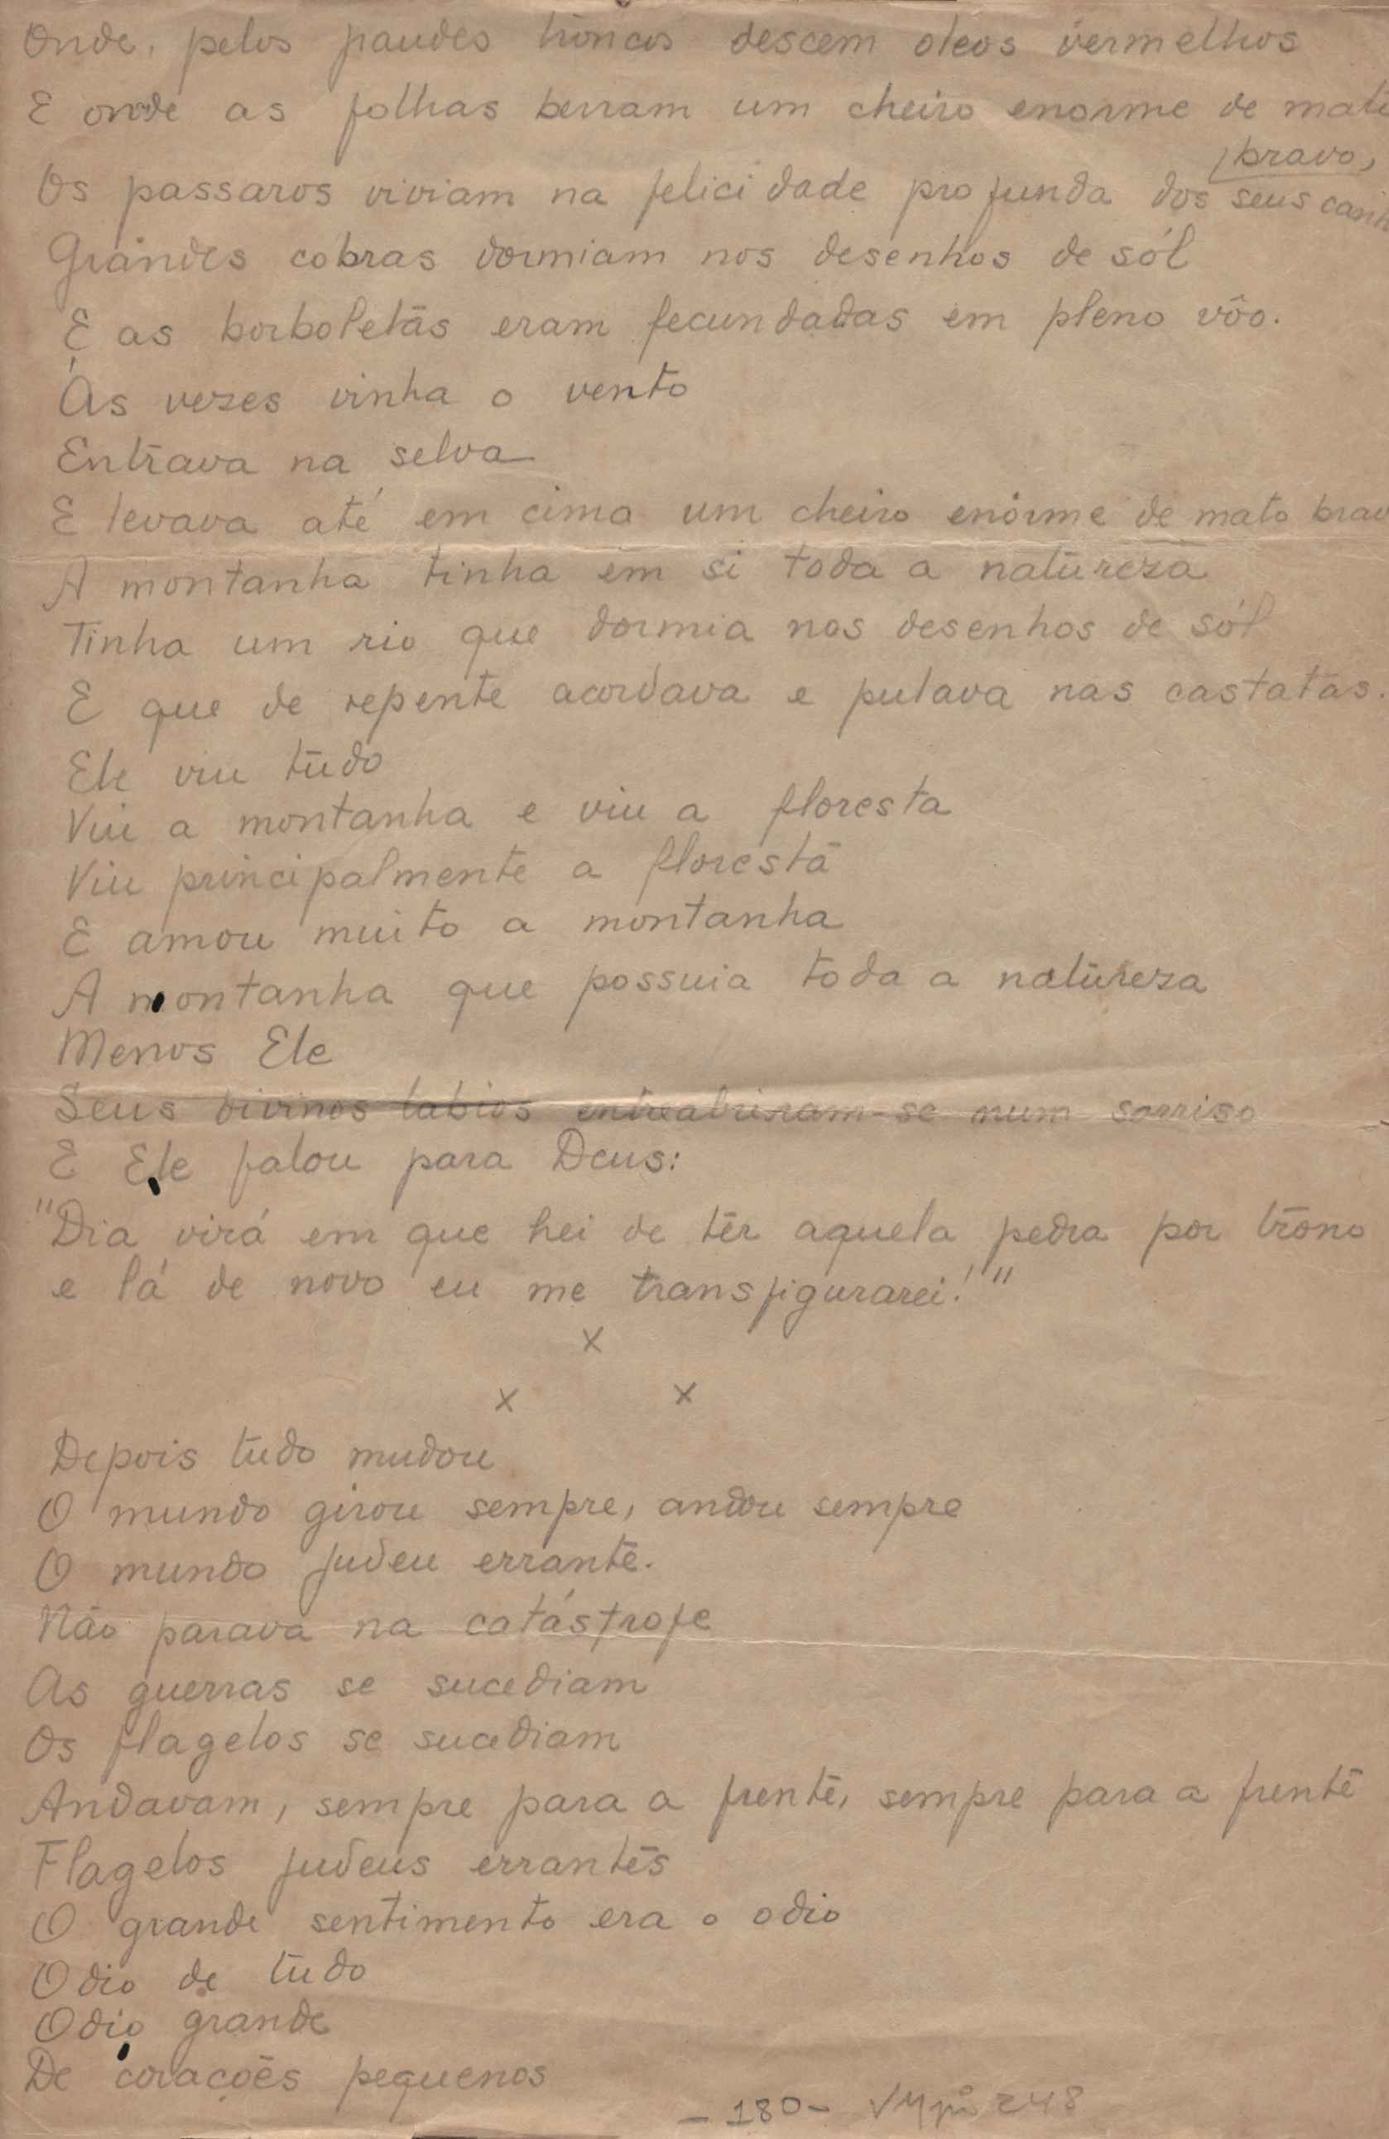 Onde, pelos paudes troncos descem oleos vermelhos
E onde as folhas berram um cheiro enorme de mato
bravo,
Os passaros viviam na felicidade profunda dos seus
Grandes cobras dormiam nos desenhos de sól
E as borboletas eram fecundadas em pleno vôo.
Às vezes vinha o vento
Entrava na selva
E levava até em cima um cheiro enorme de mato brav
A montanha tinha em si toda a natureza
Tinha um rio que dormia nos desenhos de sól
E que de repente acordava e pulava nas castatas.
Ele viu tudo
Viu a montanha e viu a floresta
Viu principalmente a floresta
E amou muito a montanha
A montanha que possuia toda a natureza
Menos Ele
Seus divinos labios entreabriram-se num sorriso
E Ele falou para Deus:
"Dia virá em que hei de têr aquela pedra por trôno
e lá de novo eu me transfigurarei!"
x
x x
Depois tudo mudou
O mundo girou sempre, andou sempre
O mundo judeu errante.
Não parava na catástrofe
As guerras se sucediam
Os flagelos se sucediam
Andavam, sempre para a frente, sempre para a frente
Flagelos judeus errantes
O grande sentimento era o odio
Odio de tudo
Odio grande
De corações pequenos
-180- 248